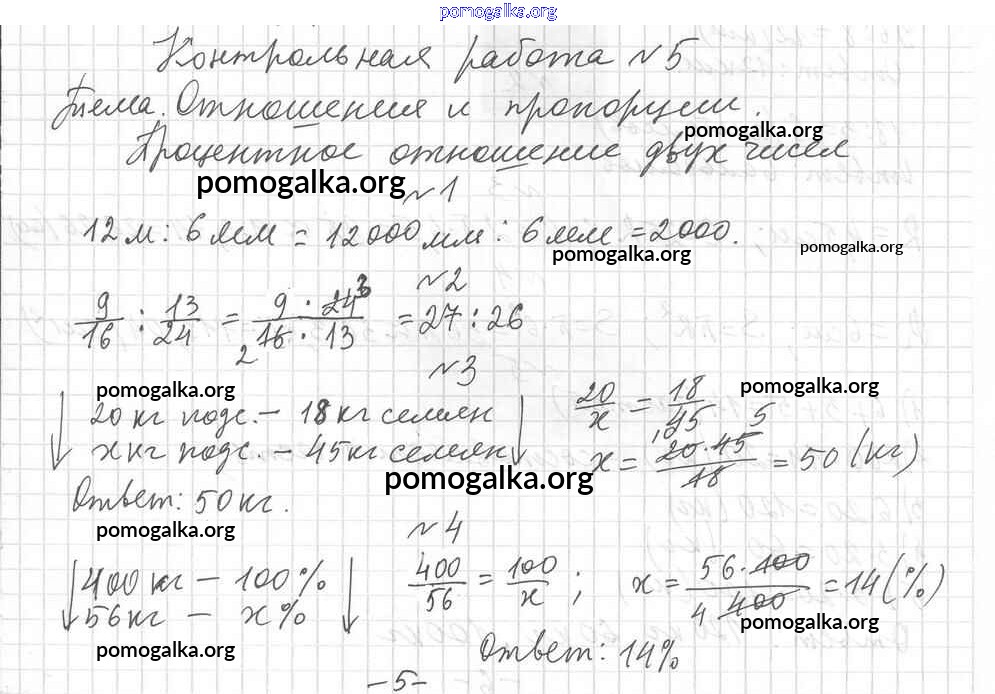 pomogalka.org
Контрольная работа №5
Тема. Отношения и пропорции.
pomogalka.org
Процентное отношение двух чисел
pomogalka.org
№1
12м : 6мм = 12000мм : 6мм = 2000.
pomogalka.org
pomogalka.org
№2
9/16 : 13/24 = 9 · 24 3 / 2 16 · 13 = 27 : 26
№3
pomogalka.org
pomogalka.org
↓ 20 кг подс. – 18 кг семян ↓ 20/x = 18/45
x кг подс. – 45 кг семян x = 10 20 · 45 5 / 18 = 50 (кг)
pomogalka.org
Ответ: 50 кг.
pomogalka.org
№4
↓ 400 кг – 100% ↓ 400/56 = 100/x ; x = 56 · 100 / 4 400 = 14 (%)
56 кг – x%
pomogalka.org
pomogalka.org
Ответ: 14%
–5–